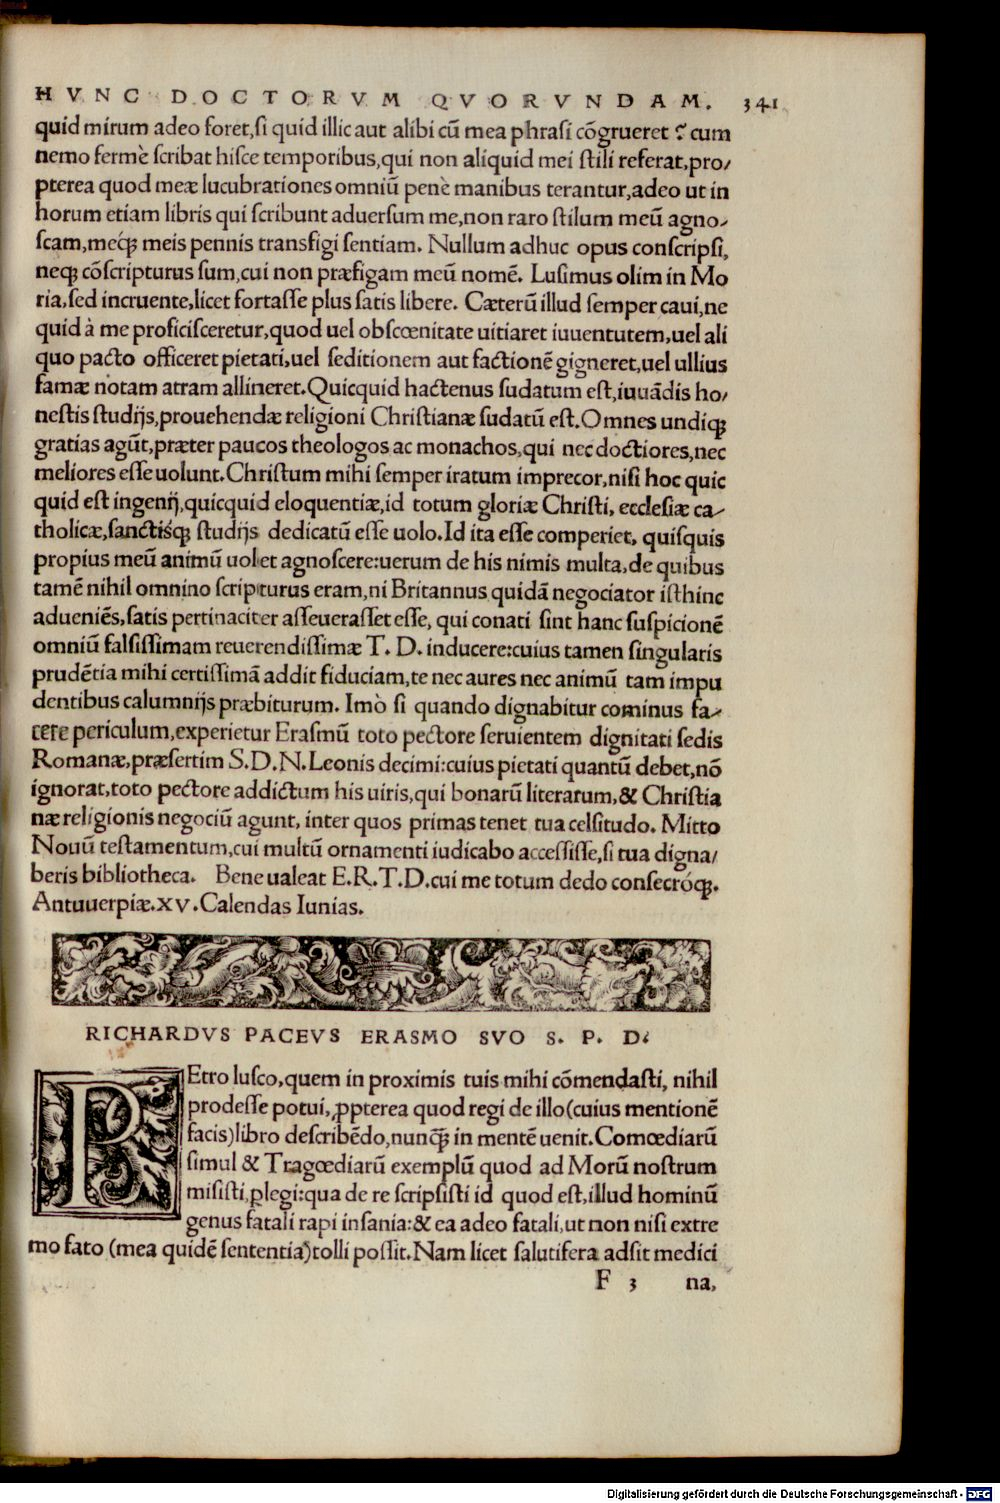 HVNC DOCTORVM QVORVNDAM. 341
quid mirum adeo foret,si quid illic aut alibi cū mea phrasi cōgrueret ? cum
nemo fermè scribat hisce temporibus,qui non aliquid mei stili referat,pro/
pterea quod meæ lucubrationes omniū penè manibus terantur,adeo ut in
horum etiam libris qui scribunt aduersum me,non raro stilum meū agno/
scam,meq́ꝫ meis pennis transfigi sentiam. Nullum adhuc opus conscripsi,
neqꝫ cōscripturus sum,cui non præfigam meū nomē. Lusimus olim in Mo
ria,sed incruente,licet fortasse plus satis libere. Cæterū illud semper caui,ne
quid à me proficisceretur,quod uel obscœnitate uitiaret iuuentutem,uel ali
quo pacto officeret pietati,uel seditionem aut factionē gigneret,uel ullius
famæ notam atram allineret.Quicquid hactenus sudatum est,iuuādis ho/
nestis studijs,prouehendæ religioni Christianæ sudatū est.Omnes undiqꝫ
gratias agūt,præter paucos theologos ac monachos,qui nec doctiores,nec
meliores esse uolunt.Christum mihi semper iratum imprecor,nisi hoc quic
quid est ingenij,quicquid eloquentiæ,id totum gloriæ Christi, ecclesiæ ca/
tholicæ,sanctisq́ꝫ studijs dedicatū esse uolo.Id ita esse comperiet, quisquis
propius meū animū uolet agnoscere:uerum de his nimis multa,de quibus
tamē nihil omnino scripturus eram,ni Britannus quidā negociator isthinc
adueniēs,satis pertinaciter asseuerasset esse, qui conati sint hanc suspicionē
omniū falsissimam reuerendissimæ T. D. inducere:cuius tamen singularis
prudētia mihi certissimā addit fiduciam,te nec aures nec animū tam impu
dentibus calumnijs præbiturum. Imò si quando dignabitur cominus fa/
cere periculum,experietur Erasmū toto pectore seruientem dignitati sedis
Romanæ,præsertim S.D.N.Leonis decimi:cuius pietati quantū debet,nō
ignorat,toto pectore addictum his uiris,qui bonarū literarum,& Christia
næ religionis negociū agunt, inter quos primas tenet tua celsitudo. Mitto
Nouū testamentum,cui multū ornamenti iudicabo accessisse,si tua digna/
beris bibliotheca. Bene ualeat E.R.T.D.cui me totum dedo consecróqꝫ.
Antuuerpiæ.XV.Calendas Iunias.
RICHARDVS PACEVS ERASMO SVO S. P. D.
PEtro lusco,quem in proximis tuis mihi cōmendasti, nihil
prodesse potui,ꝓpterea quod regi de illo(cuius mentionē
facis)libro describēdo,nunq̄ꝫ in mentē uenit.Comœdiarū
simul & Tragœdiarū exemplū quod ad Morū nostrum
misisti,ꝑlegi:qua de re scripsisti id quod est,illud hominū
genus fatali rapi insania:& ea adeo fatali,ut non nisi extre
mo fato (mea quidē sententia)tolli possit.Nam licet salutifera adsit medici
F 3 na,
Digitalisierung gefördert durch die Deutsche Forschungsgemeinschaft - DFG